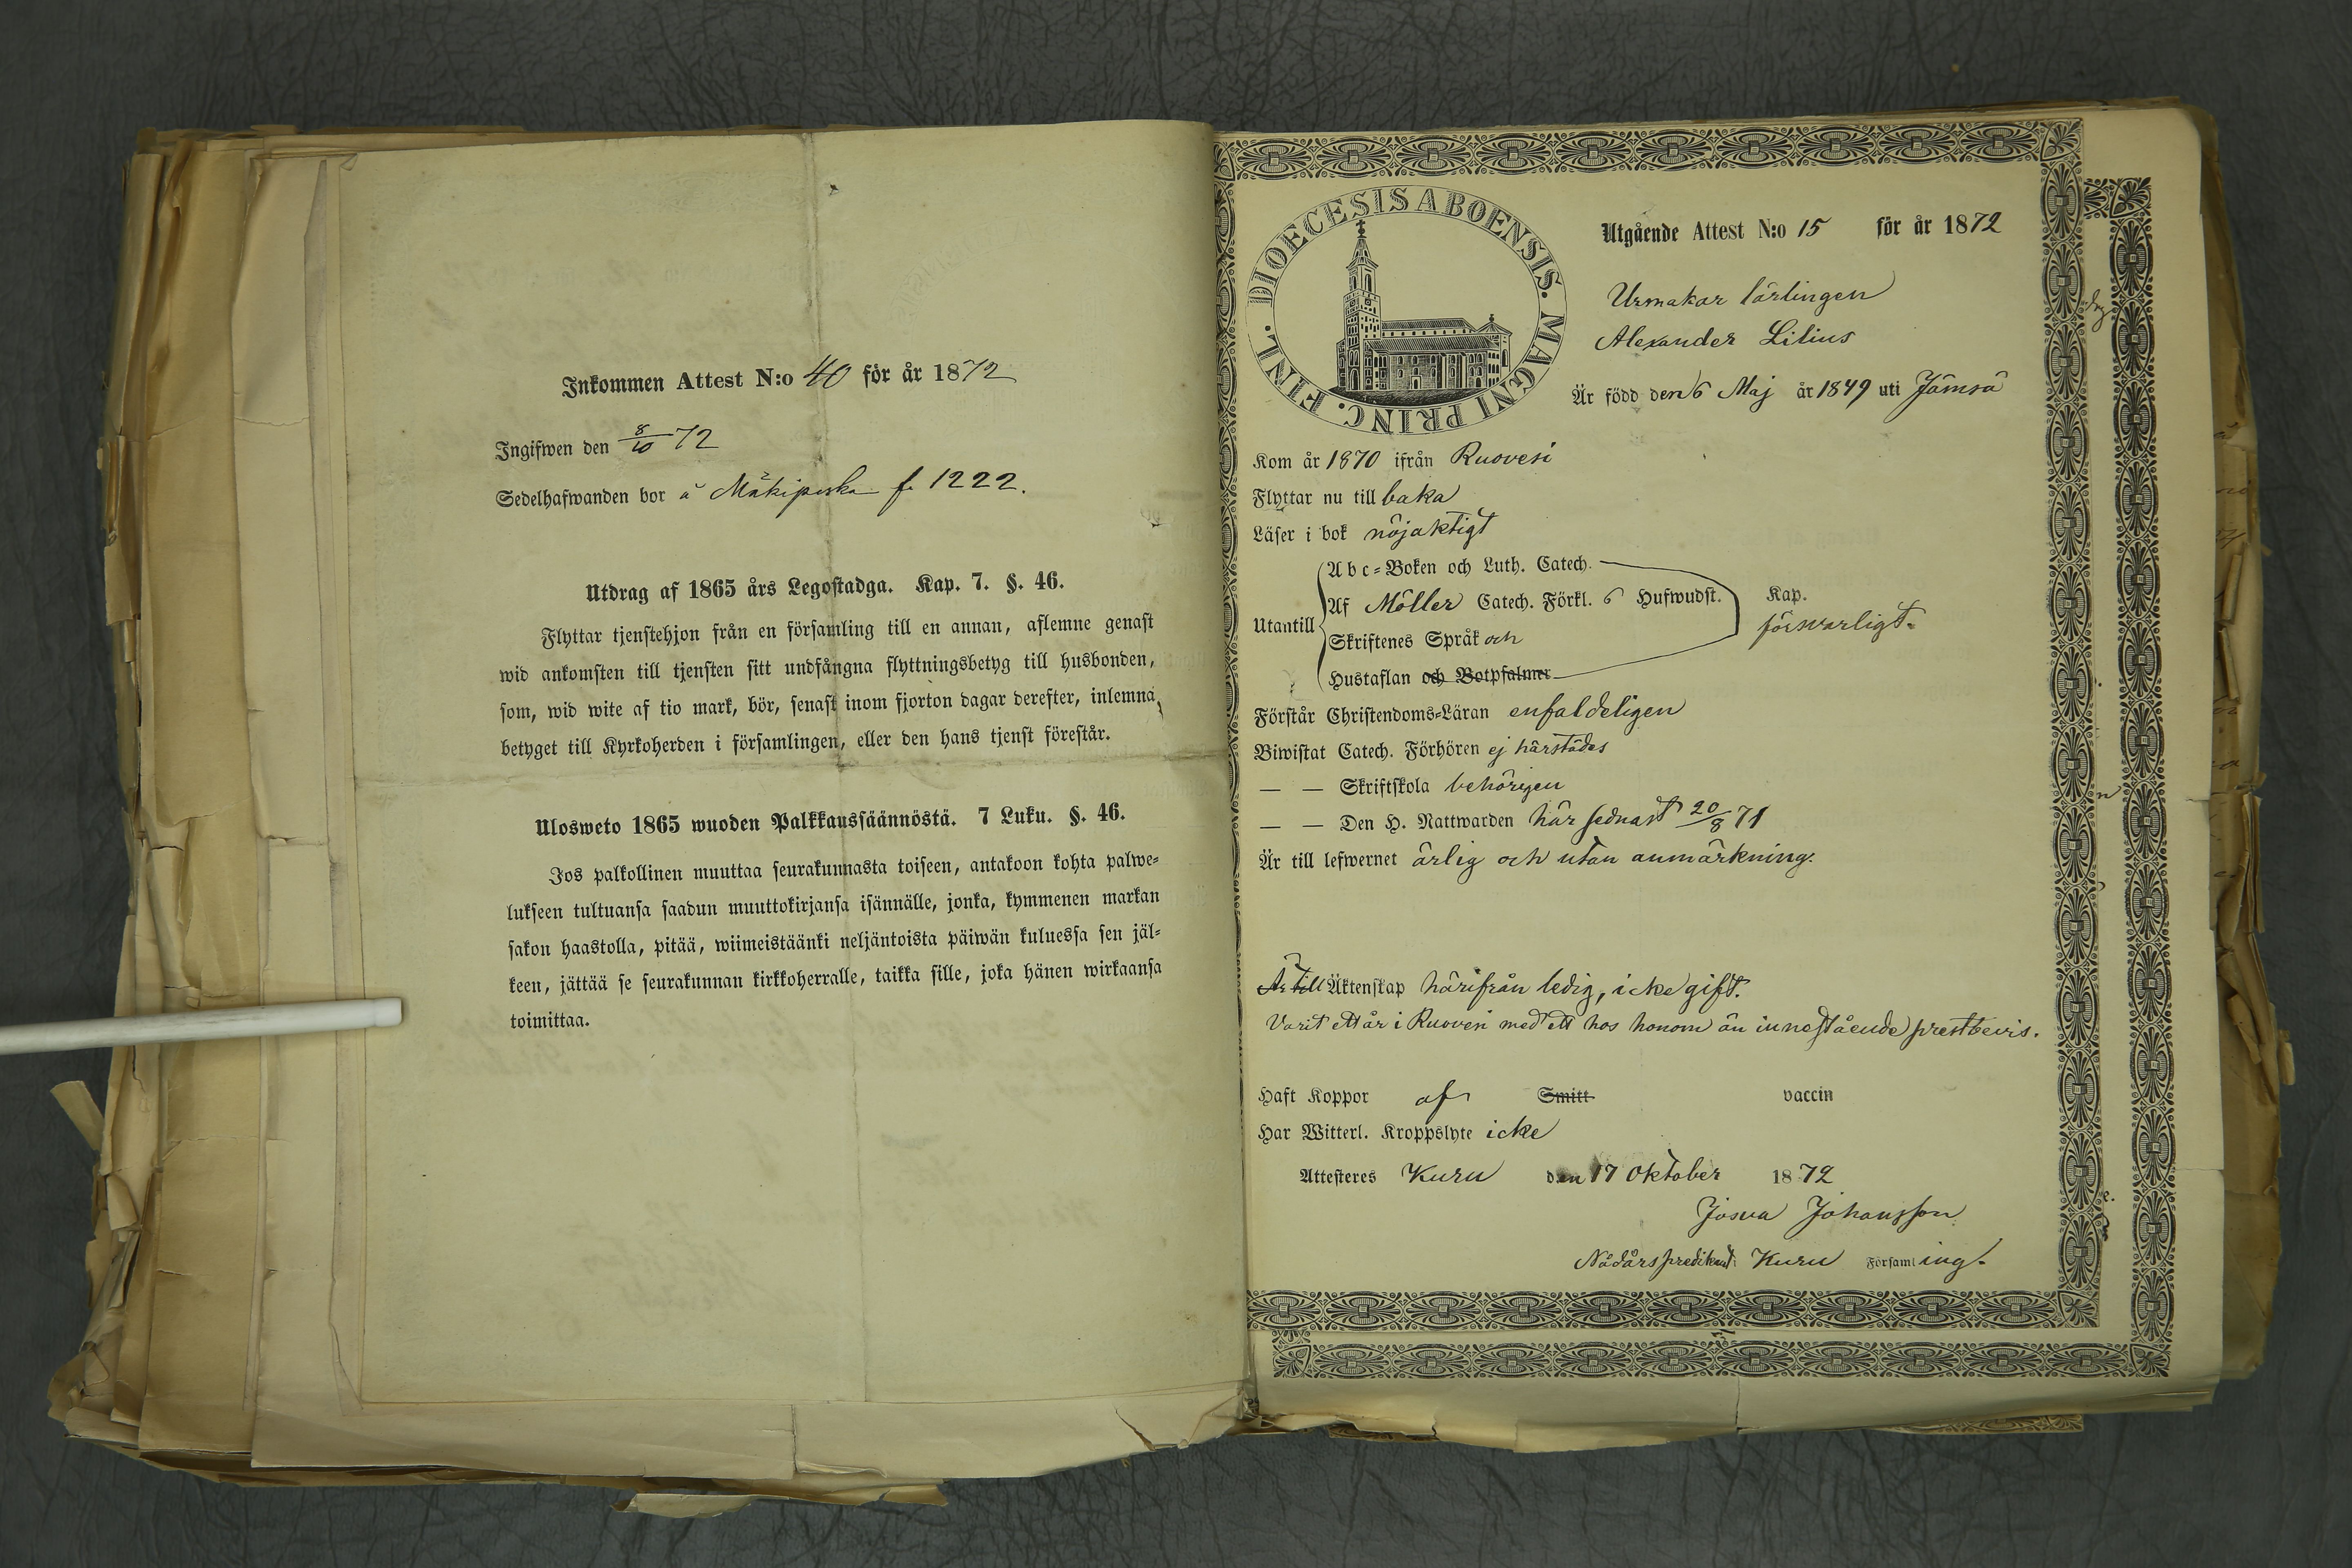 Inkommen Attest N:o 40 för år 1872
Ingifwen den 8/10 72
Sedelhafwanden bor å Mäkipeska f. 1222.
Utdrag af 1865 års Legostadga. Kap. 7. §. 46.
Flyttar tjenstehjon från en församling till en annan, aflemne genast
wid ankomsten till tjensten sitt undfångna flyttningsbetyg till husbonden,
som, wid wite af tio mark, bör, senast inom fjorton dagar derefter, inlemna
betyget till Kyrkoherden i församlingen, eller den hans tjenst förestår.
Ulosweto 1865 wuoden Palkkaussäännöstä. 7 Luku. §. 46.
Jos palkollinen muuttaa seurakunnasta toiseen, antakoon kohta palwe=
lukseen tultuansa saadun muuttokirjansa isännälle, jonka, kymmenen markan
sakon haastolla, pitää, wiimeistäänki neljäntoista päiwän kuluessa sen jäl=
keen, jättää se seurakunnan kirkkoherralle, taikka sille, joka hänen wirkaansa
toimittaa.
DIOECESIS ABOENSIS. MAGNI PRINC. FINL.
Utgående Attest N:o 15 för år 1872
Urmakar lärlingen
Alexander Lilius
Är född den 6 Maj år 1849 uti Jämsä
Kom år 1870 ifrån Ruovesi
Flyttar nu till baka
Läser i bok nöjaktigt
Utantill
Abc=Boken och Luth. Catech.
Af Möller Catech. Förkl. 6 Hufwudst. Kap.
Skriftenes Språk och
Hustaflan och Botpsalmer
försvarligt.
Förstår Christendoms=Läran enfaldeligen
Biwistat Catech. Förhören ej härstädes
— — Skriftskola behörigen
— — Den H. Nattwarden här sednast 20/8 71
Är till lefwernet ärlig och utan anmärkning.
Är till Äktenskap härifrån ledig, icke gift.
Varit ett år i Ruovesi med ett hos honom än innestående prestbevis.
Haft Koppor af Smitt vaccin
Har Witterl. Kroppslyte icke
Attesteres Kuru den 17 Oktober 1872
Josua Johansson
Nådårspredikant i Kuru Församling.